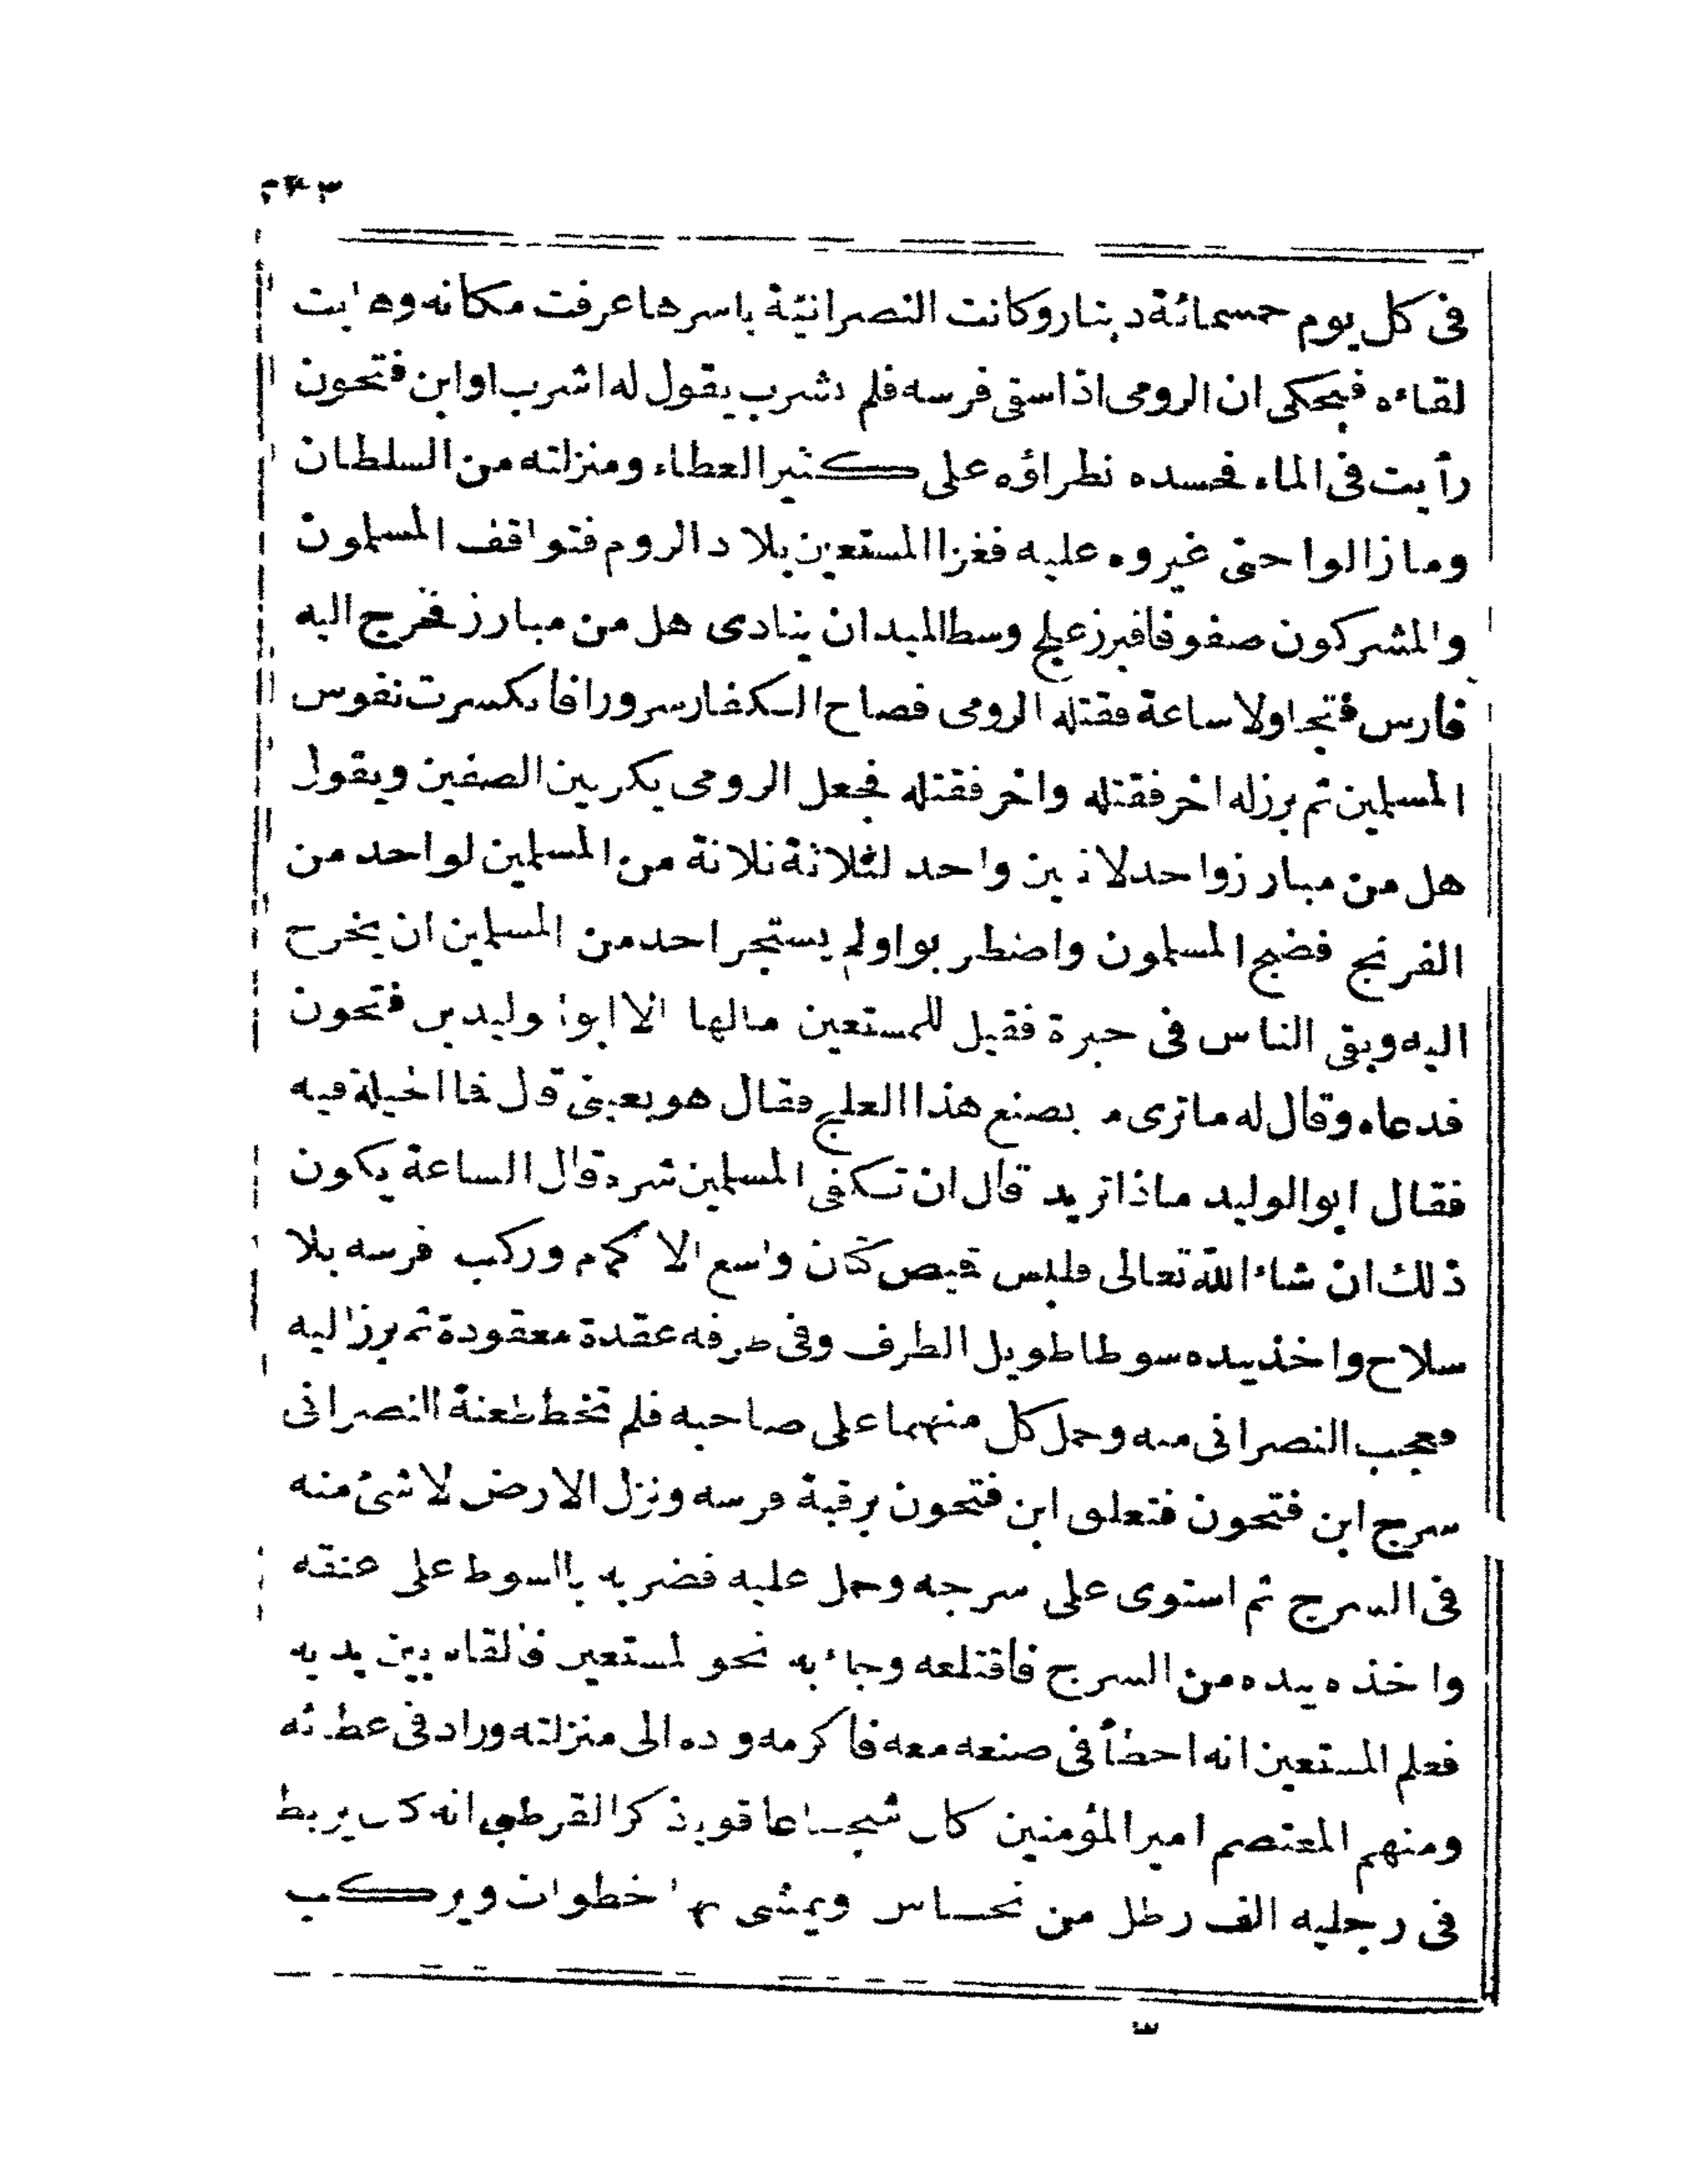 ٢٤٣
فى كل يوم خمسمائة دينار وكانت النصرانية باسرها عرفت مكانه وهابت
لقاءه فيحكى ان الرومى اذا سقى فرسه فلم يشرب يقول له اشرب او ابن فتحون
رأيت فى الماء فحسده نظراؤه على كثير العطاء ومنزلته من السلطان
وما زالوا حتى غيروه عليه فغزا المستعين بلاد الروم فتواقف المسلمون
والمشركون صفوفا فبرز علج وسط الميدان ينادى هل من مبارز فخرج اليه
فارس فتجاولا ساعة فقتله الرومى فصاح الكفار سرورا فانكسرت نفوس
المسلمين ثم برز له اخر فقتله واخر فقتله فجعل الرومى يكر بين الصفين ويقول
هل من مبارز واحد لاثنين واحد لثلاثة ثلاثة من المسلمين لواحد من
الفرنج فضج المسلمون واضطربوا ولم يستجر احد من المسلمين ان يخرج
اليه وبقى الناس فى حيرة فقيل للمستعين مالها الا ابوا وليد بن فتحون
فدعاه وقال له ما ترى م يصنع هذا العلج فقال هو بعينى قال فما الحيلة فيه
فقال ابو الوليد ماذا تريد قال ان تكفى المسلمين شره قال الساعة يكون
ذلك ان شاء الله تعالى فلبس قميص كتان واسع الاكمام وركب فرسه بلا
سلاح واخذ بيده سوطا طويل الطرف وفى طرفه عقدة معقودة ثم برز اليه
فعجب النصرانى منه وحمل كل منهما على صاحبه فلم تخط طعنة النصرانى
سرج ابن فتحون فتعلق ابن فتحون برقبة فرسه ونزل الارض لا شئ منه
فى السرج ثم استوى على سرجه وحمل عليه فضربه بالسوط على عنقه
واخذه بيده من السرج فاقتلعه وجاء به نحو لمستعين فالقاه بين يديه
فعلم المستعين انه احطأ فى صنعه معه فاكرمه و ده الى منزلته وراد فى عطائه
ومنهم المعتصم امير المؤمنين كان شجاعا قويا ذكر القرطبى انه كان يربط
فى رجليه الف رطل من نحاس ويمشى بها خطوات ويركب